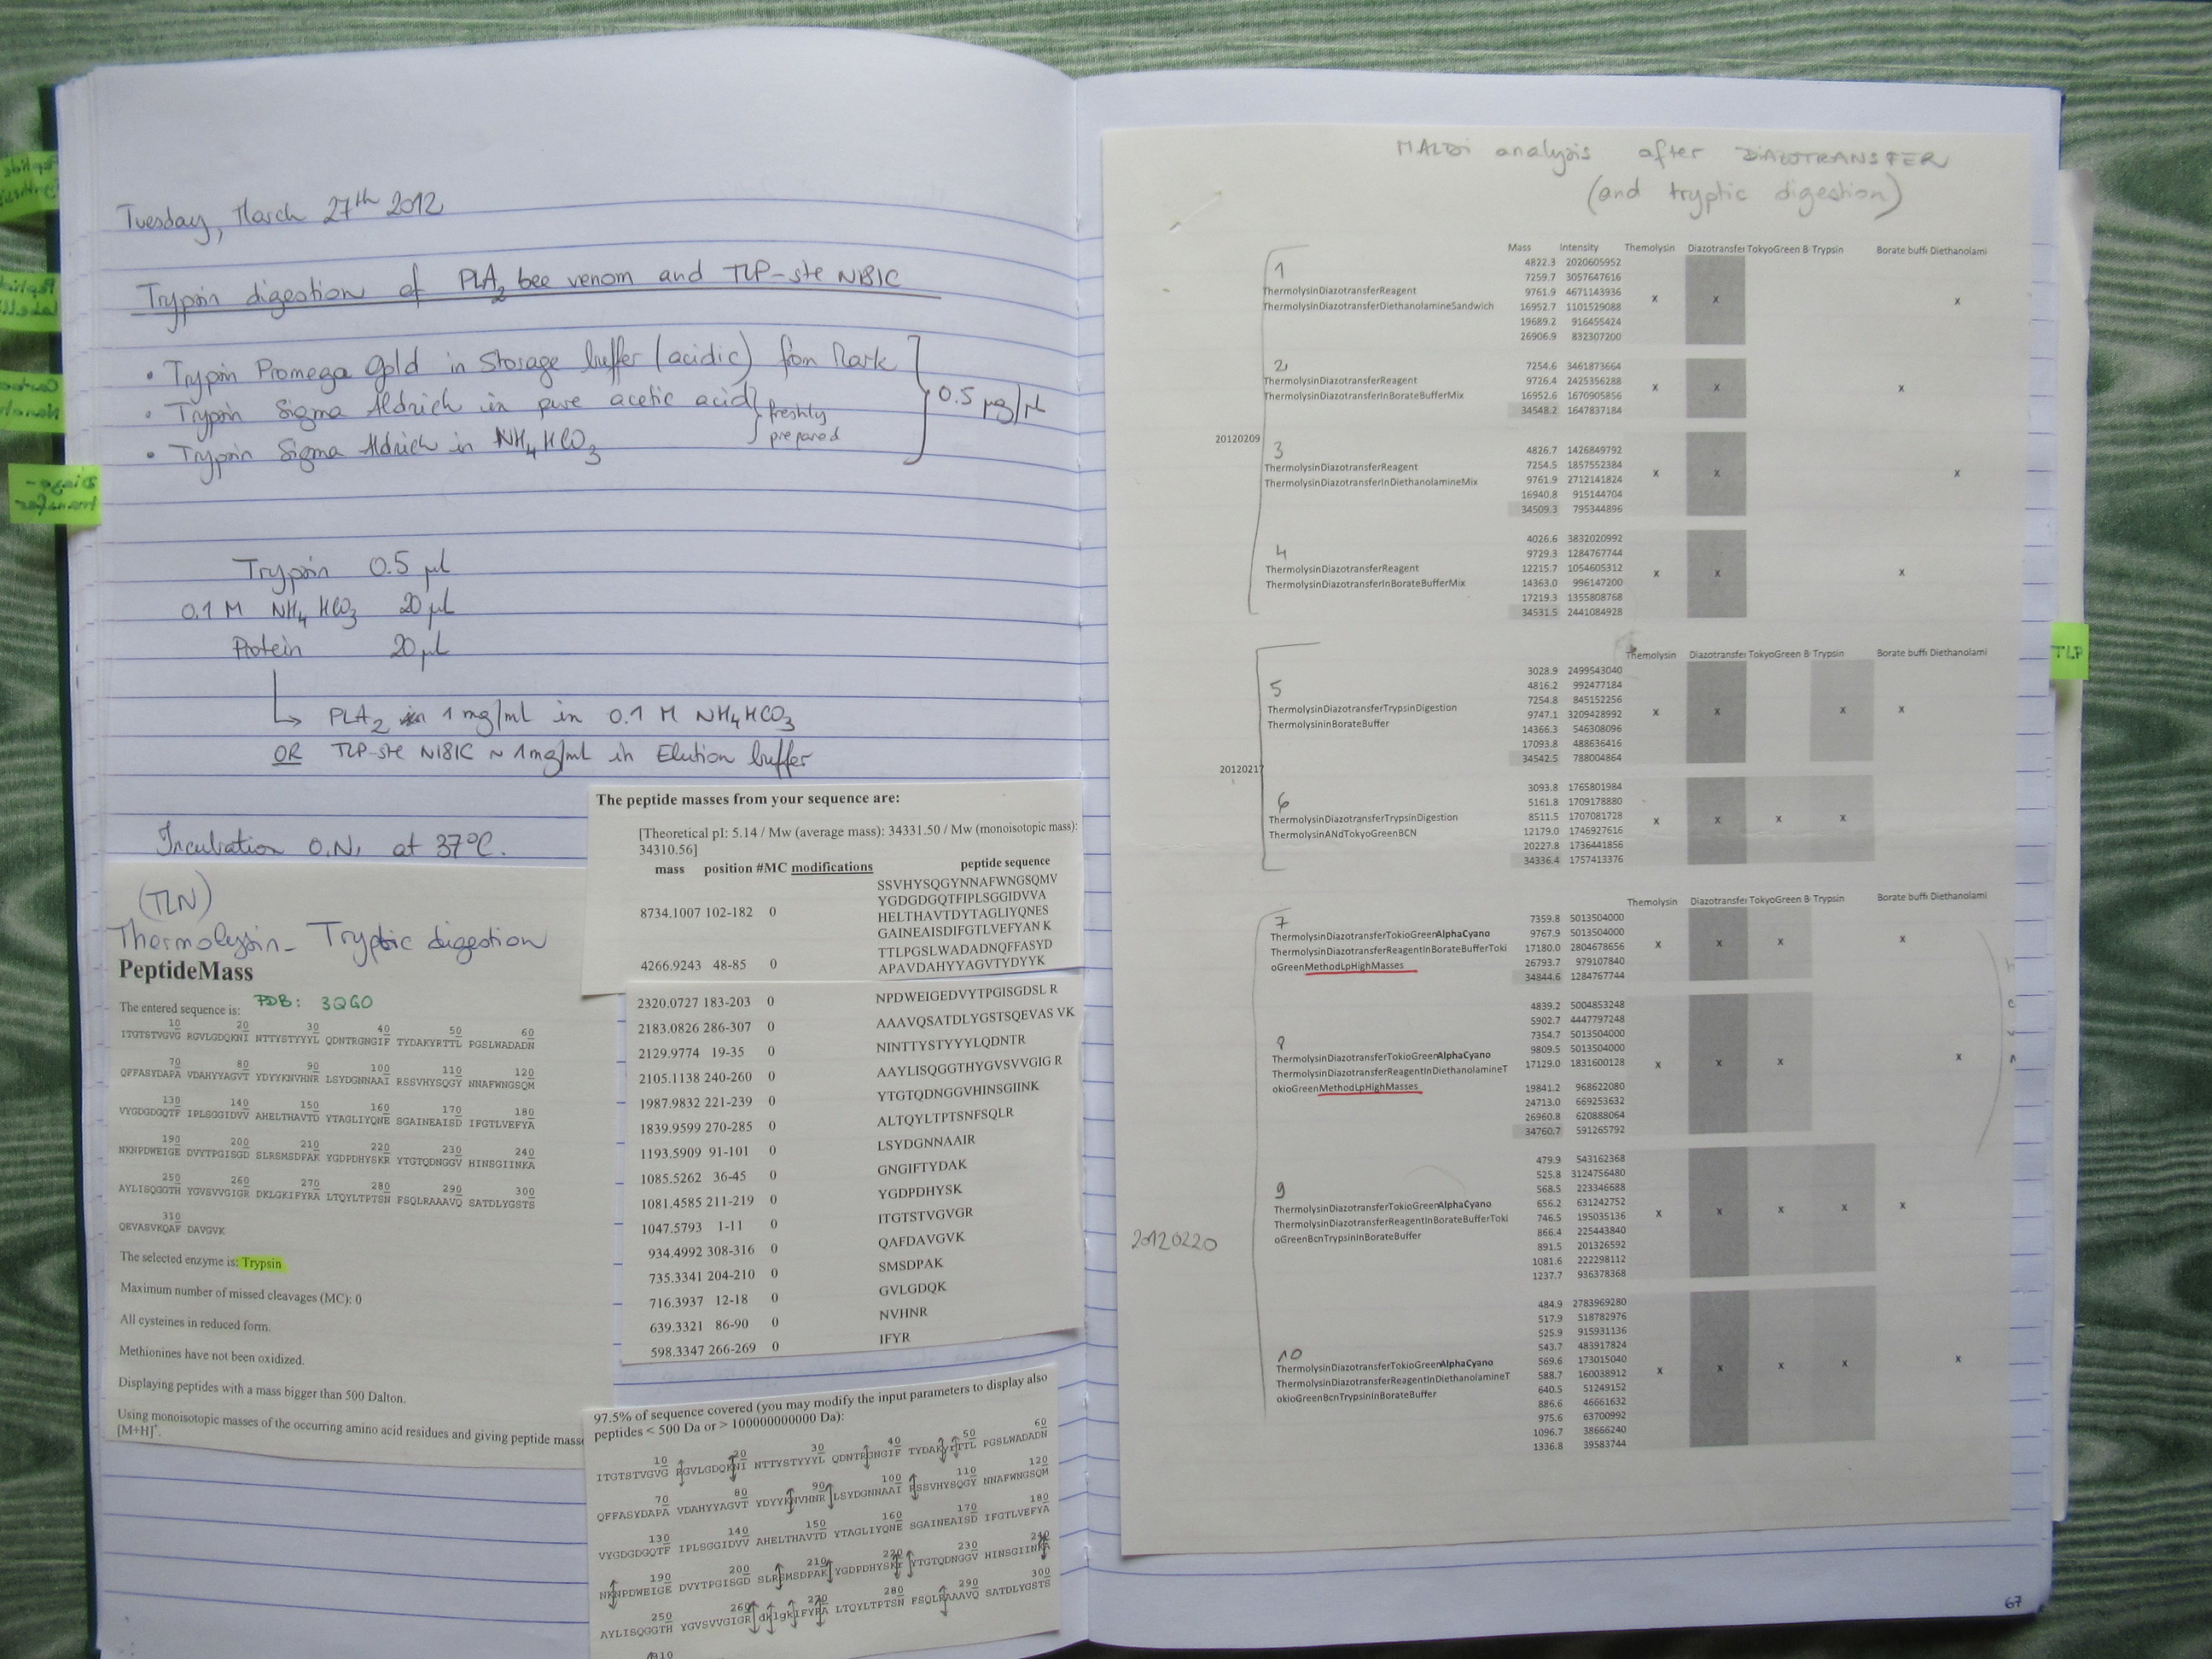 Tuesday, March 27th 2012
Trypsin digestion of PLA2 bee venom and TLP-ste N181C
• Trypsin Promega Gold in Storage buffer (acidic) from Mark
• Trypsin Sigma Aldrich in pure acetic acid
• Trypsin Sigma Aldrich in NH4HCO3
freshly
prepared
0.5 µg/µl
Trypsin 0.5 µl
0.1 M NH4HCO3 20 µl
Protein 20 µl
PLA2 in 1 mg/ml in 0.1 M NH4HCO3
OR TLP-ste N181C ~ 1mg/ml in Elution buffer
Incubation O.N. at 37°C.
(TLN)
Thermolysin - Tryptic digestion
PeptideMass
The entered sequence is: PDB: 3QGO
10 20 30 40 50 60
ITGTSTVGVG RGVLGDQKNI NTTYSTYYYL QDNTRGNGIF TYDAKYRTTL PGSLWADADN
70 80 90 100 110 120
QFFASYDAPA VDAHYYAGVT YDYYKNVHNR LSYDGNNAAI RSSVHYSQGY NNAFWNGSQM
130 140 150 160 170 180
VYGDGDGQTF IPLSGGIDVV AHELTHAVTD YTAGLIYQNE SGAINEAISD IFGTLVEFYA
190 200 210 220 230 240
NKNPDWEIGE DVYTPGISGD SLRSMSDPAK YGDPDHYSKR YTGTQDNGGV HINSGIINKA
250 260 270 280 290 300
AYLISQGGTH YGVSVVGIGR DKLGKIFYRA LTQYLTPTSN FSQLRAAAVQ SATDLYGSTS
310
QEVASVKQAF DAVGVK
The selected enzyme is: Trypsin
Maximum number of missed cleavages (MC): 0
All cysteines in reduced form.
Methionines have not been oxidized.
Displaying peptides with a mass bigger than 500 Dalton.
Using monoisotopic masses of the occurring amino acid residues and giving peptide masse
[M+H]+.
The peptide masses from your sequence are:
[Theoretical pI: 5.14 / Mw (average mass): 34331.50 / Mw (monoisotopic mass):
34310.56]
mass position #MC modifications peptide sequence
SSVHYSQGYNNAFWNGSQMV
YGDGDGQTFIPLSGGIDVVA
8734.1007 102-182 0 HELTHAVTDYTAGLIYQNES
GAINEAISDIFGTLVEFYAN K
TTLPGSLWADADNQFFASYD
4266.9243 48-85 0 APAVDAHYYAGVTYDYYK
2320.0727 183-203 0 NPDWEIGEDVYTPGISGDSL R
2183.0826 286-307 0 AAAVQSATDLYGSTSQEVAS VK
2129.9774 19-35 0 NINTTYSTYYYLQDNTR
2105.1138 240-260 0 AAYLISQGGTHYGVSVVGIG R
1987.9832 221-239 0 YTGTQDNGGVHINSGIINK
1839.9599 270-285 0 ALTQYLTPTSNFSQLR
1193.5909 91-101 0 LSYDGNNAAIR
1085.5262 36-45 0 GNGIFTYDAK
1081.4585 211-219 0 YGDPDHYSK
1047.5793 1-11 0 ITGTSTVGVGR
934.4992 308-316 0 QAFDAVGVK
735.3341 204-210 0 SMSDPAK
716.3937 12-18 0 GVLGDQK
639.3321 86-90 0 NVHNR
598.3347 266-269 0 IFYR
97.5% of sequence covered (you may modify the input parameters to display also
peptides < 500 Da or > 100000000000 Da):
10 20 30 40 50 60
ITGTSTVGVG RGVLGDQKNI NTTYSTYYYL QDNTRGNGIF TYDAKyrTTL PGSLWADADN
70 80 90 100 110 120
QFFASYDAPA VDAHYYAGVT YDYYKNVHNR LSYDGNNAAI RSSVHYSQGY NNAFWNGSQM
130 140 150 160 170 180
VYGDGDGQTF IPLSGGIDVV AHELTHAVTD YTAGLIYQNE SGAINEAISD IFGTLVEFYA
190 200 210 220 230 240
NKNPDWEIGE DVYTPGISGD SLRSMSDPAK YGDPDHYSKr YTGTQDNGGV HINSGIINKA
250 260 270 280 290 300
AYLISQGGTH YGVSVVGIGR dklgkIFYRA LTQYLTPTSN FSQLRAAAVQ SATDLYGSTS
310
MALDI analysis after DIAZOTRANSFER
(and tryptic digestion)
Mass Intensity Themolysin Diazotransfer TokyoGreen B Trypsin Borate buffe Diethanolami
20120209
1
4822.3 2020605952
7259.7 3057647616
ThermolysinDiazotransferReagent 9761.9 4671143936 x x x
ThermolysinDiazotransferDiethanolamineSandwich 16952.7 1101529088
19689.2 916455424
26906.9 832307200
2
7254.6 3461873664
ThermolysinDiazotransferReagent 9726.4 2425356288 x x x
ThermolysinDiazotransferInBorateBufferMix 16952.6 1670905856
34548.2 1647837184
3
4826.7 1426849792
7254.5 1857552384
ThermolysinDiazotransferReagent 9761.9 2712141824 x x x
ThermolysinDiazotransferInDiethanolamineMix 16940.8 915144704
34509.3 795344896
4
4026.6 3832020992
9729.3 1284767744
ThermolysinDiazotransferReagent 12215.7 1054605312 x x x
ThermolysinDiazotransferInBorateBufferMix 14363.0 996147200
17219.3 1355808768
34531.5 2441084928
Themolysin Diazotransfer TokyoGreen B Trypsin Borate buffe Diethanolami
20120217
5
3028.9 2499543040
4816.2 992477184
7254.8 845152256
ThermolysinDiazotransferTrypsinDigestion 9747.1 3209428992 x x x x
ThermolysininBorateBuffer 14366.3 546308096
17093.8 488636416
34542.5 788004864
6
3093.8 1765801984
5161.8 1709178880
ThermolysinDiazotransferTrypsinDigestion 8511.5 1707081728 x x x x
ThermolysinANdTokyoGreenBCN 12179.0 1746927616
20227.8 1736441856
34336.4 1757413376
Themolysin Diazotransfer TokyoGreen B Trypsin Borate buffe Diethanolami
20120220
7
7359.8 5013504000
ThermolysinDiazotransferTokioGreenAlphaCyano 9767.9 5013504000 x x x x
ThermolysinDiazotransferReagentInBorateBufferToki 17180.0 2804678656
oGreenMethodLpHighMasses 26793.7 979107840
34844.6 1284767744
8
4839.2 5004853248
5902.7 4447797248
7354.7 5013504000
ThermolysinDiazotransferTokioGreenAlphaCyano 9809.5 5013504000
ThermolysinDiazotransferReagentInDiethanolamineT 17129.0 1831600128 x x x x
okioGreenMethodLpHighMasses 19841.2 968622080
24713.0 669253632
26960.8 620888064
34760.7 591265792
9
479.9 543162368
525.8 3124756480
568.5 223346688
ThermolysinDiazotransferTokioGreenAlphaCyano 656.2 631242752 x x x x x
ThermolysinDiazotransferReagentInBorateBufferToki 746.5 195035136
oGreenBcnTrypsinInBorateBuffer 866.4 225443840
891.5 201326592
1081.6 222298112
1237.7 936378368
10
484.9 2783969280
517.9 518782976
525.9 915931136
543.7 483917824
ThermolysinDiazotransferTokioGreenAlphaCyano 569.6 173015040 x x x x x
ThermolysinDiazotransferReagentInDiethanolamineT 588.7 160038912
okioGreenBcnTrypsinInBorateBuffer 640.5 51249152
886.6 46661632
975.6 63700992
1096.7 38666240
1336.8 39583744
TLP
67